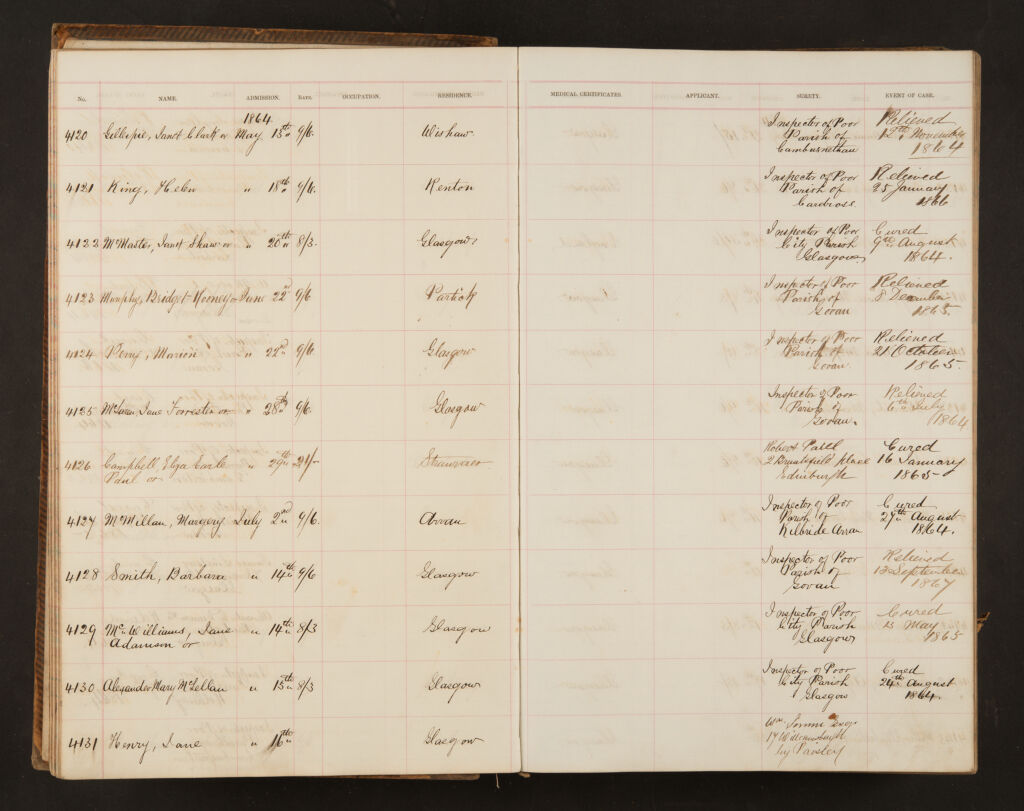 No. NAME. ADMISSION. RATE. OCCUPATION. RESIDENCE. MEDICAL CERTIFICATES. APPLICANT. SURETY. EVENT OF CASE.
1864
4120 Gillespie, Janet Clark or May 13th 9/6 Wishaw Inspector of Poor Relieved
Parish of 12th November
Cambusnethan 1864
4121 King, Helen " 18th 9/6. Renton Inspector of Poor Relieved
Parish of 25 January
Cardross 1866
4122 McMaster, Janet Shaw or " 20th 8/3. Glasgow Inspector of Poor Cured
City Parish 9th August
Glasgow 1864.
4123 Murphy, Bridget Rooney or June 22nd 9/6 Partick Inspector of Poor Relieved
Parish of 8 December
Govan 1865.
4124 Perry, Marion " 22nd 9/6. Glasgow Inspector of Poor Relieved
Parish of 21 October
Govan. 1865.
4125 Jane Forrester or " 28th 9/6. Glasgow Inspector of Poor Relieved
Parish of 6th July
Govan. 1864
4126 Campbell, Eliza Earle " 29th 21/- Stranraer Robert Cured
Paul or 2 place 16 January
Edinburgh 1865
4127 McMillan, Margery July 2nd 9/6. Arran Inspector of Poor Cured
Parish of 29th August
Kilbride Arran 1864.
4128 Smith, Barbara " 14th 9/6 Glasgow Inspector of Poor Relieved
Parish of 13 September
Govan 1867
4129 McWilliams, Jane " 14th 8/3 Glasgow Inspector of Poor Cured
Adamson or City Parish 13 May
Glasgow 1865
4130 Alexander Mary McLellan " 15th 8/3 Glasgow Inspector of Poor Cured
City Parish 24th August
Glasgow 1864.
4131 Henry, Jane " 16th Glasgow Wm
17
by Paisley